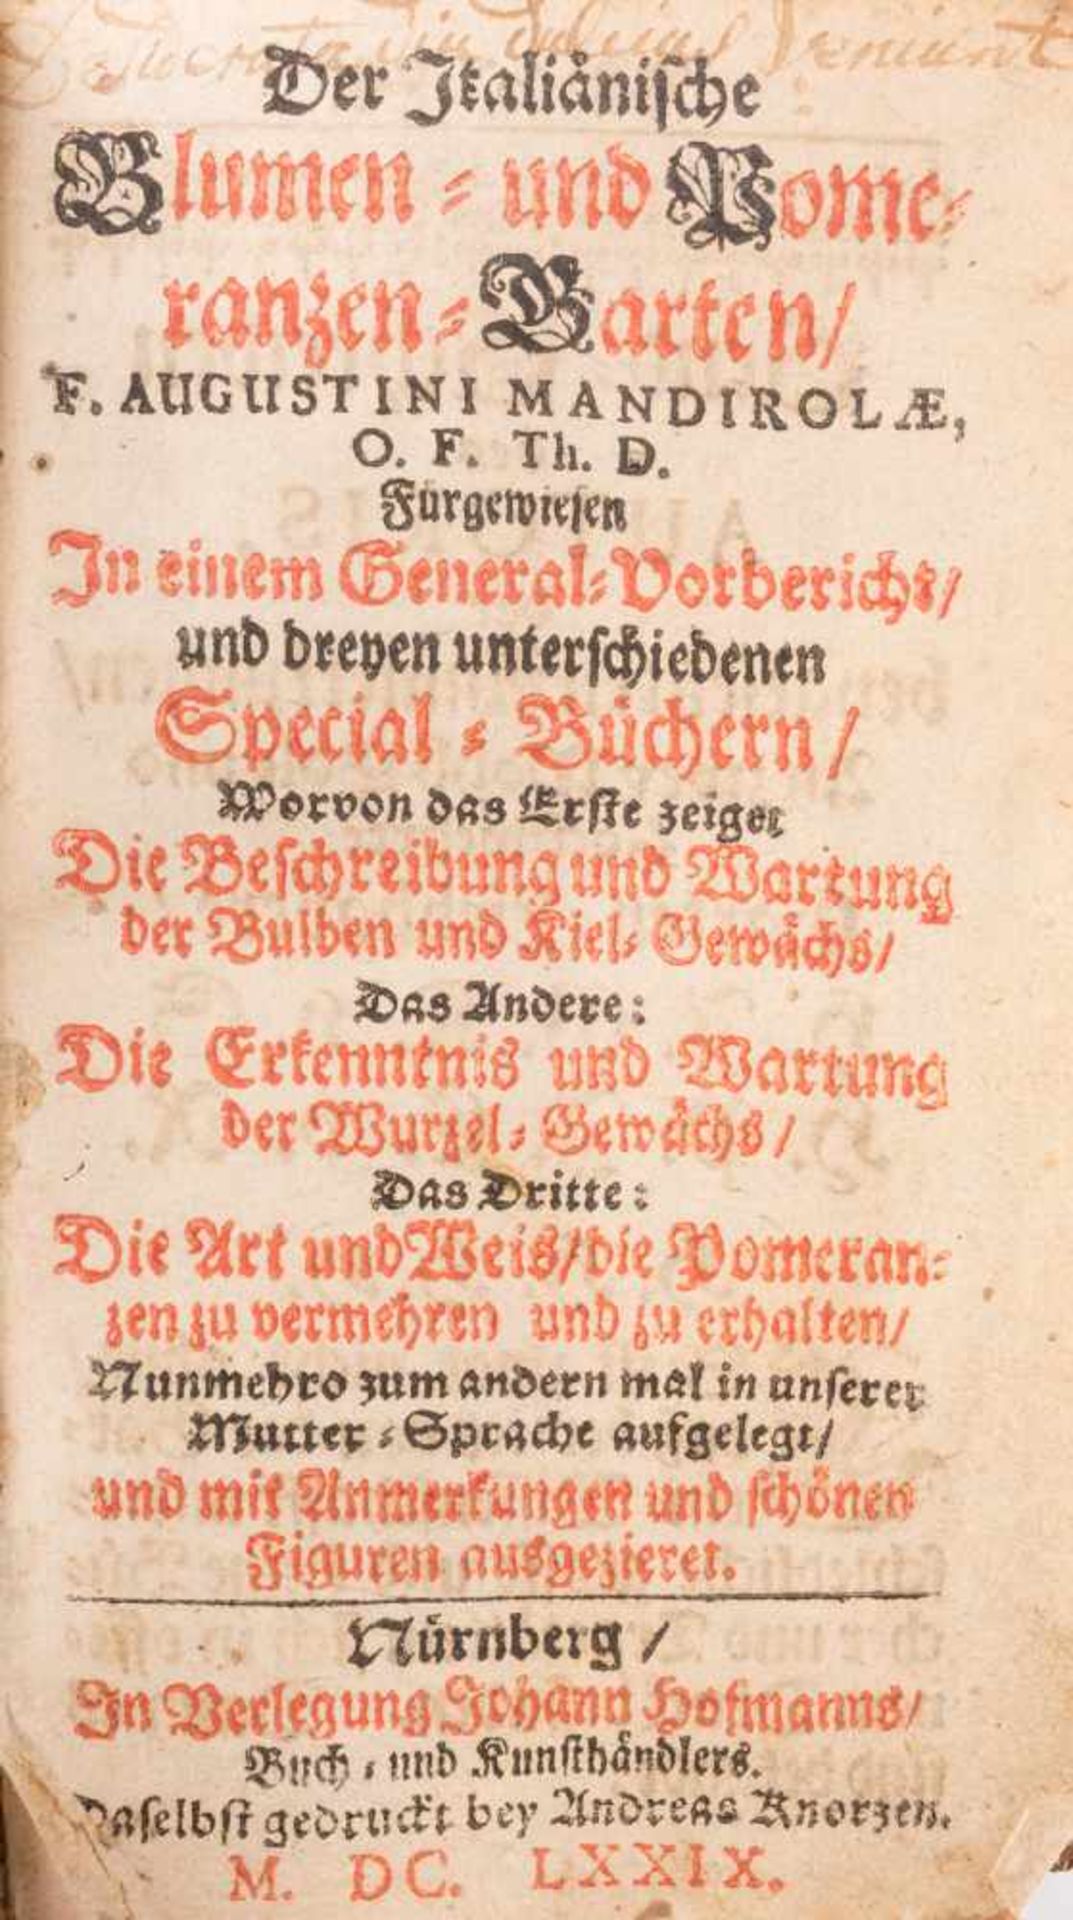 Der Italiänische
Blumen- und Pome-
ranzen-Garten/
F. AUGUSTINI MANDIROLÆ,
O. F. Th. D.
Fürgewiesen
In einem General-Vorbericht/
und dreyen unterschiedenen
Special-Büchern/
Worvon das Erste zeiget
Die Beschreibung und Wartung
der Bulben und Kiel-Gewächs/
Das Andere:
Die Erkenntnis und Wartung
der Wurzel-Gewächs/
Das Dritte:
Die Art und Weis/die Pomeran-
zen zu vermehren und zu erhalten/
Nunmehro zum andern mal in unserer
Mutter-Sprache aufgelegt/
und mit Anmerkungen und schönen
Figuren ausgezieret.
Nürnberg/
In Verlegung Johann Hofmanns/
Buch- und Kunsthändlers.
Daselbst gedruckt bey Andreas Knorzen.
M. DC. LXXIX.